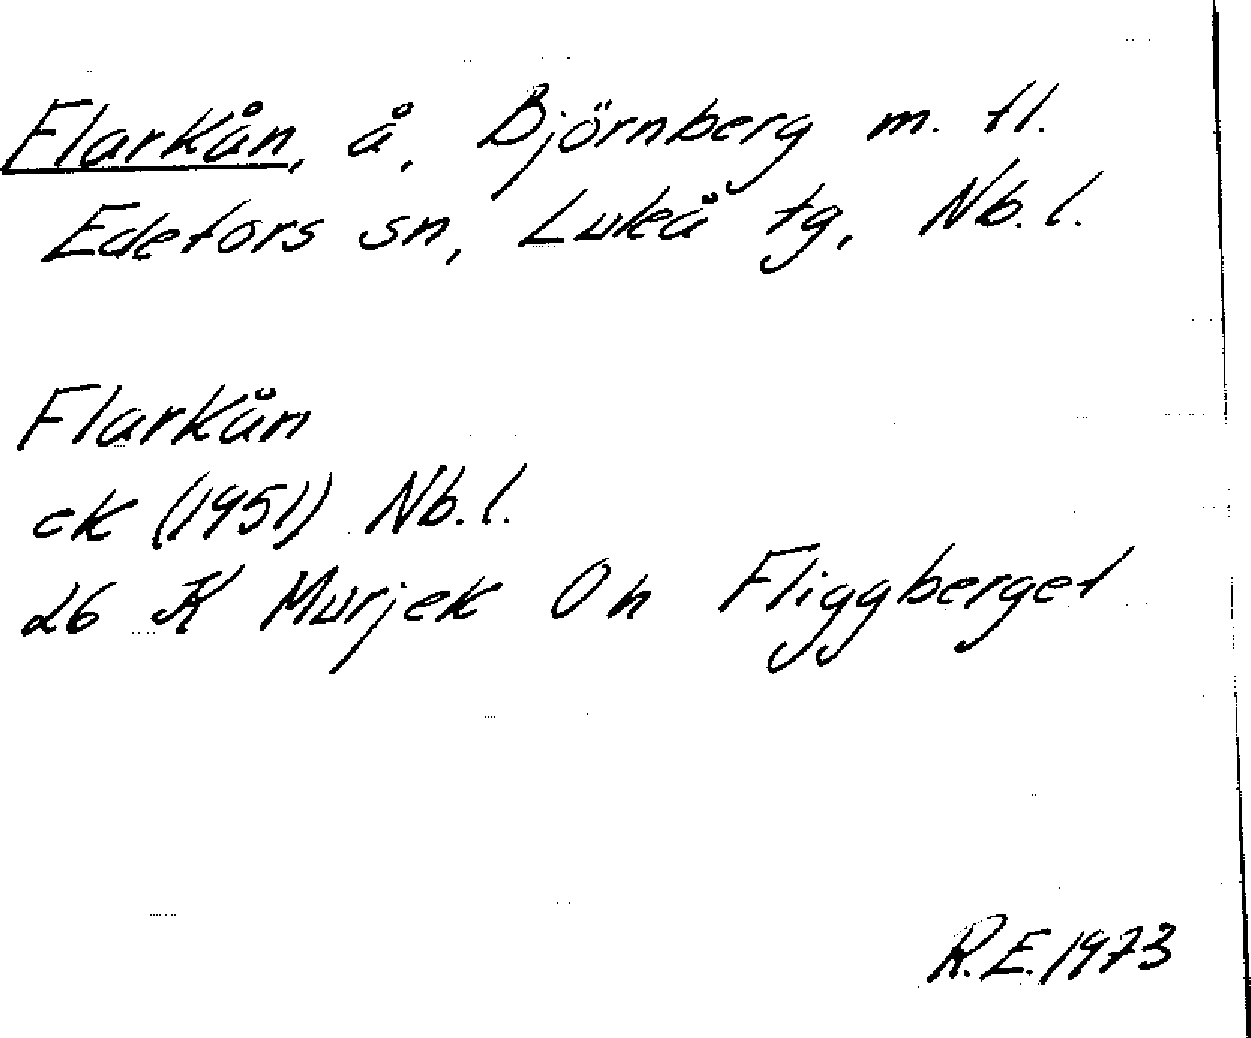 Flarkån, å, Björnberg m. fl.
Edefors sn, Luleå tg, Nb. l.
Flarkån
ek (1951) Nb. l.
26 K Murjek 0 h Fliggberget
R.E. 1973